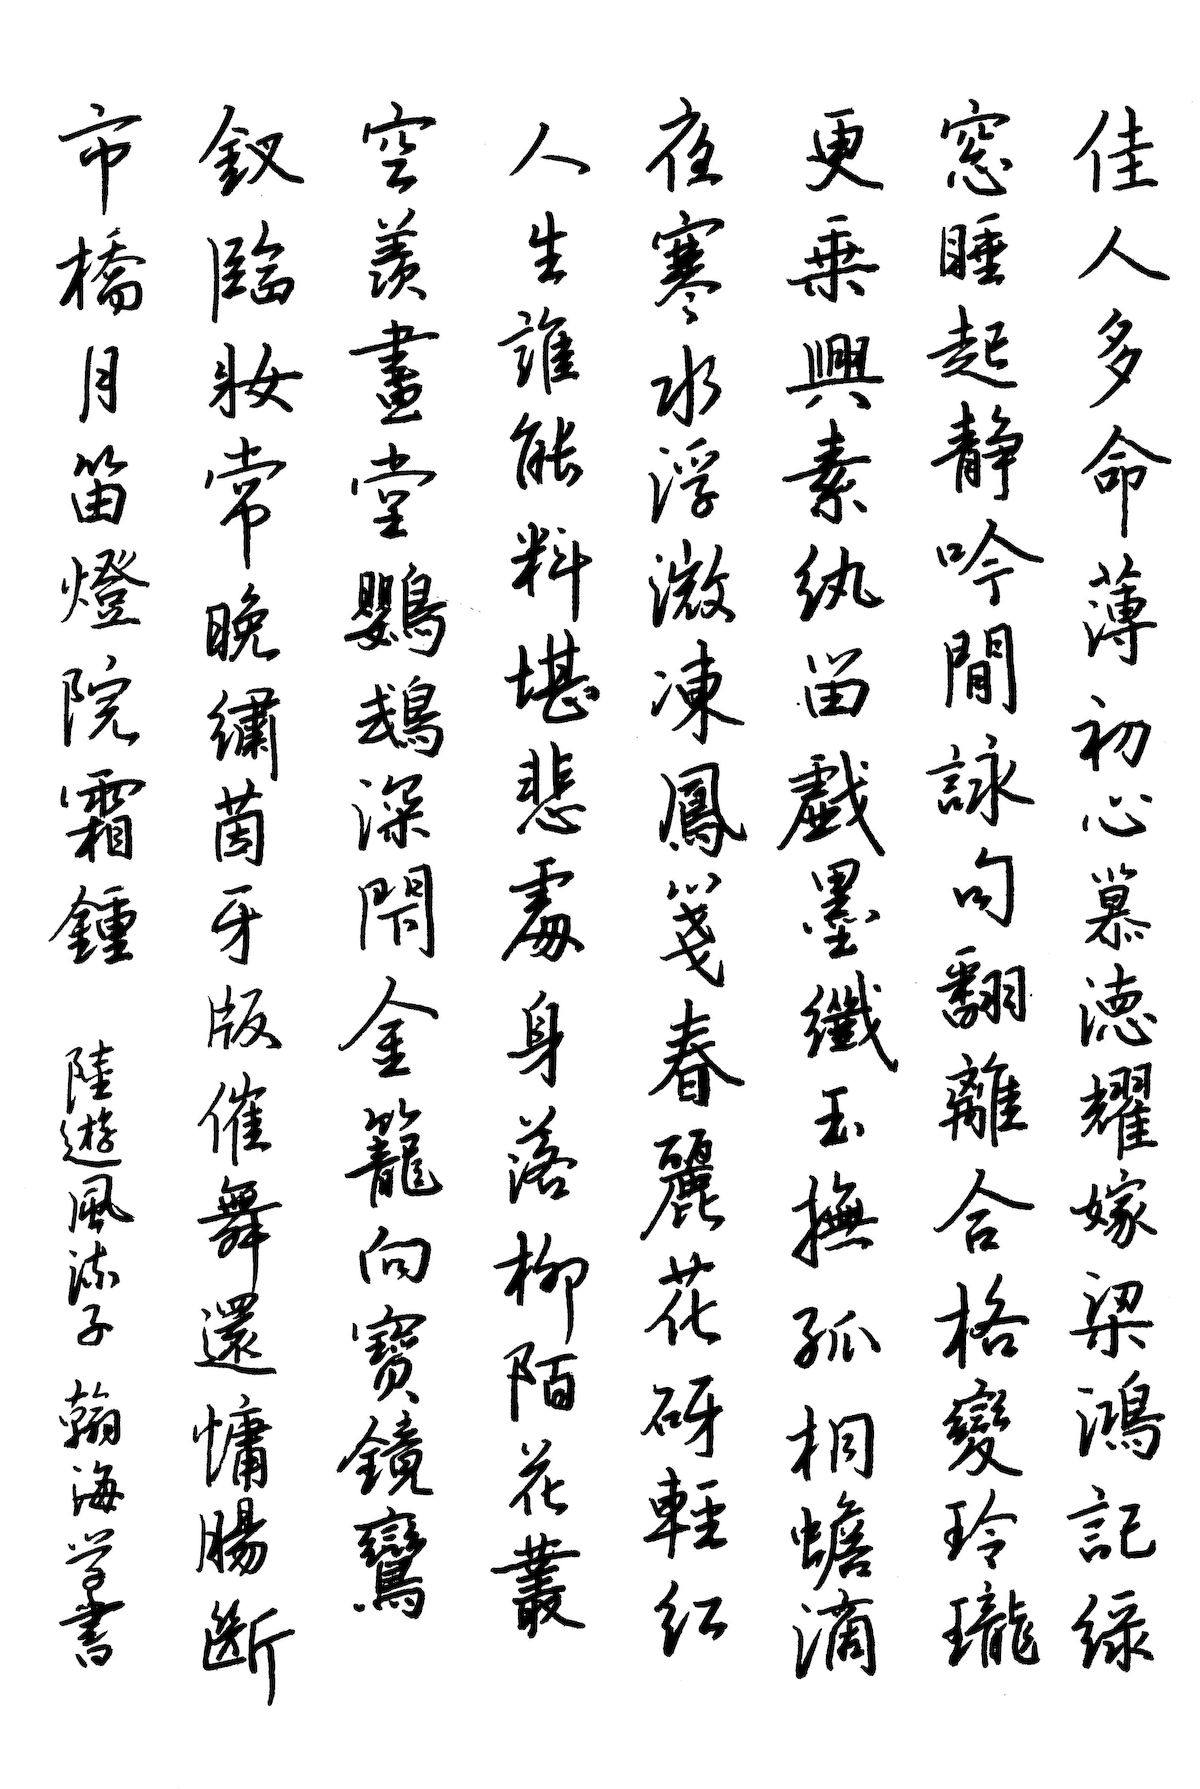 佳人多命薄初心慕德耀嫁梁鴻記綠
窓睡起靜吟閒詠句翻離合格變玲瓏
更乗興素紈留戲墨纖玉撫孤桐蟾滴
夜寒水浮微凍鳳箋春麗花砑輕紅
人生誰能料堪悲處身落柳陌花叢
空羨畫堂鸚鵡深閉金籠向寶鏡鸞
釵臨妝常晚繡茵牙版催舞還慵腸斷
市橋月笛燈院霜鐘 陸遊風流子 翰海学書